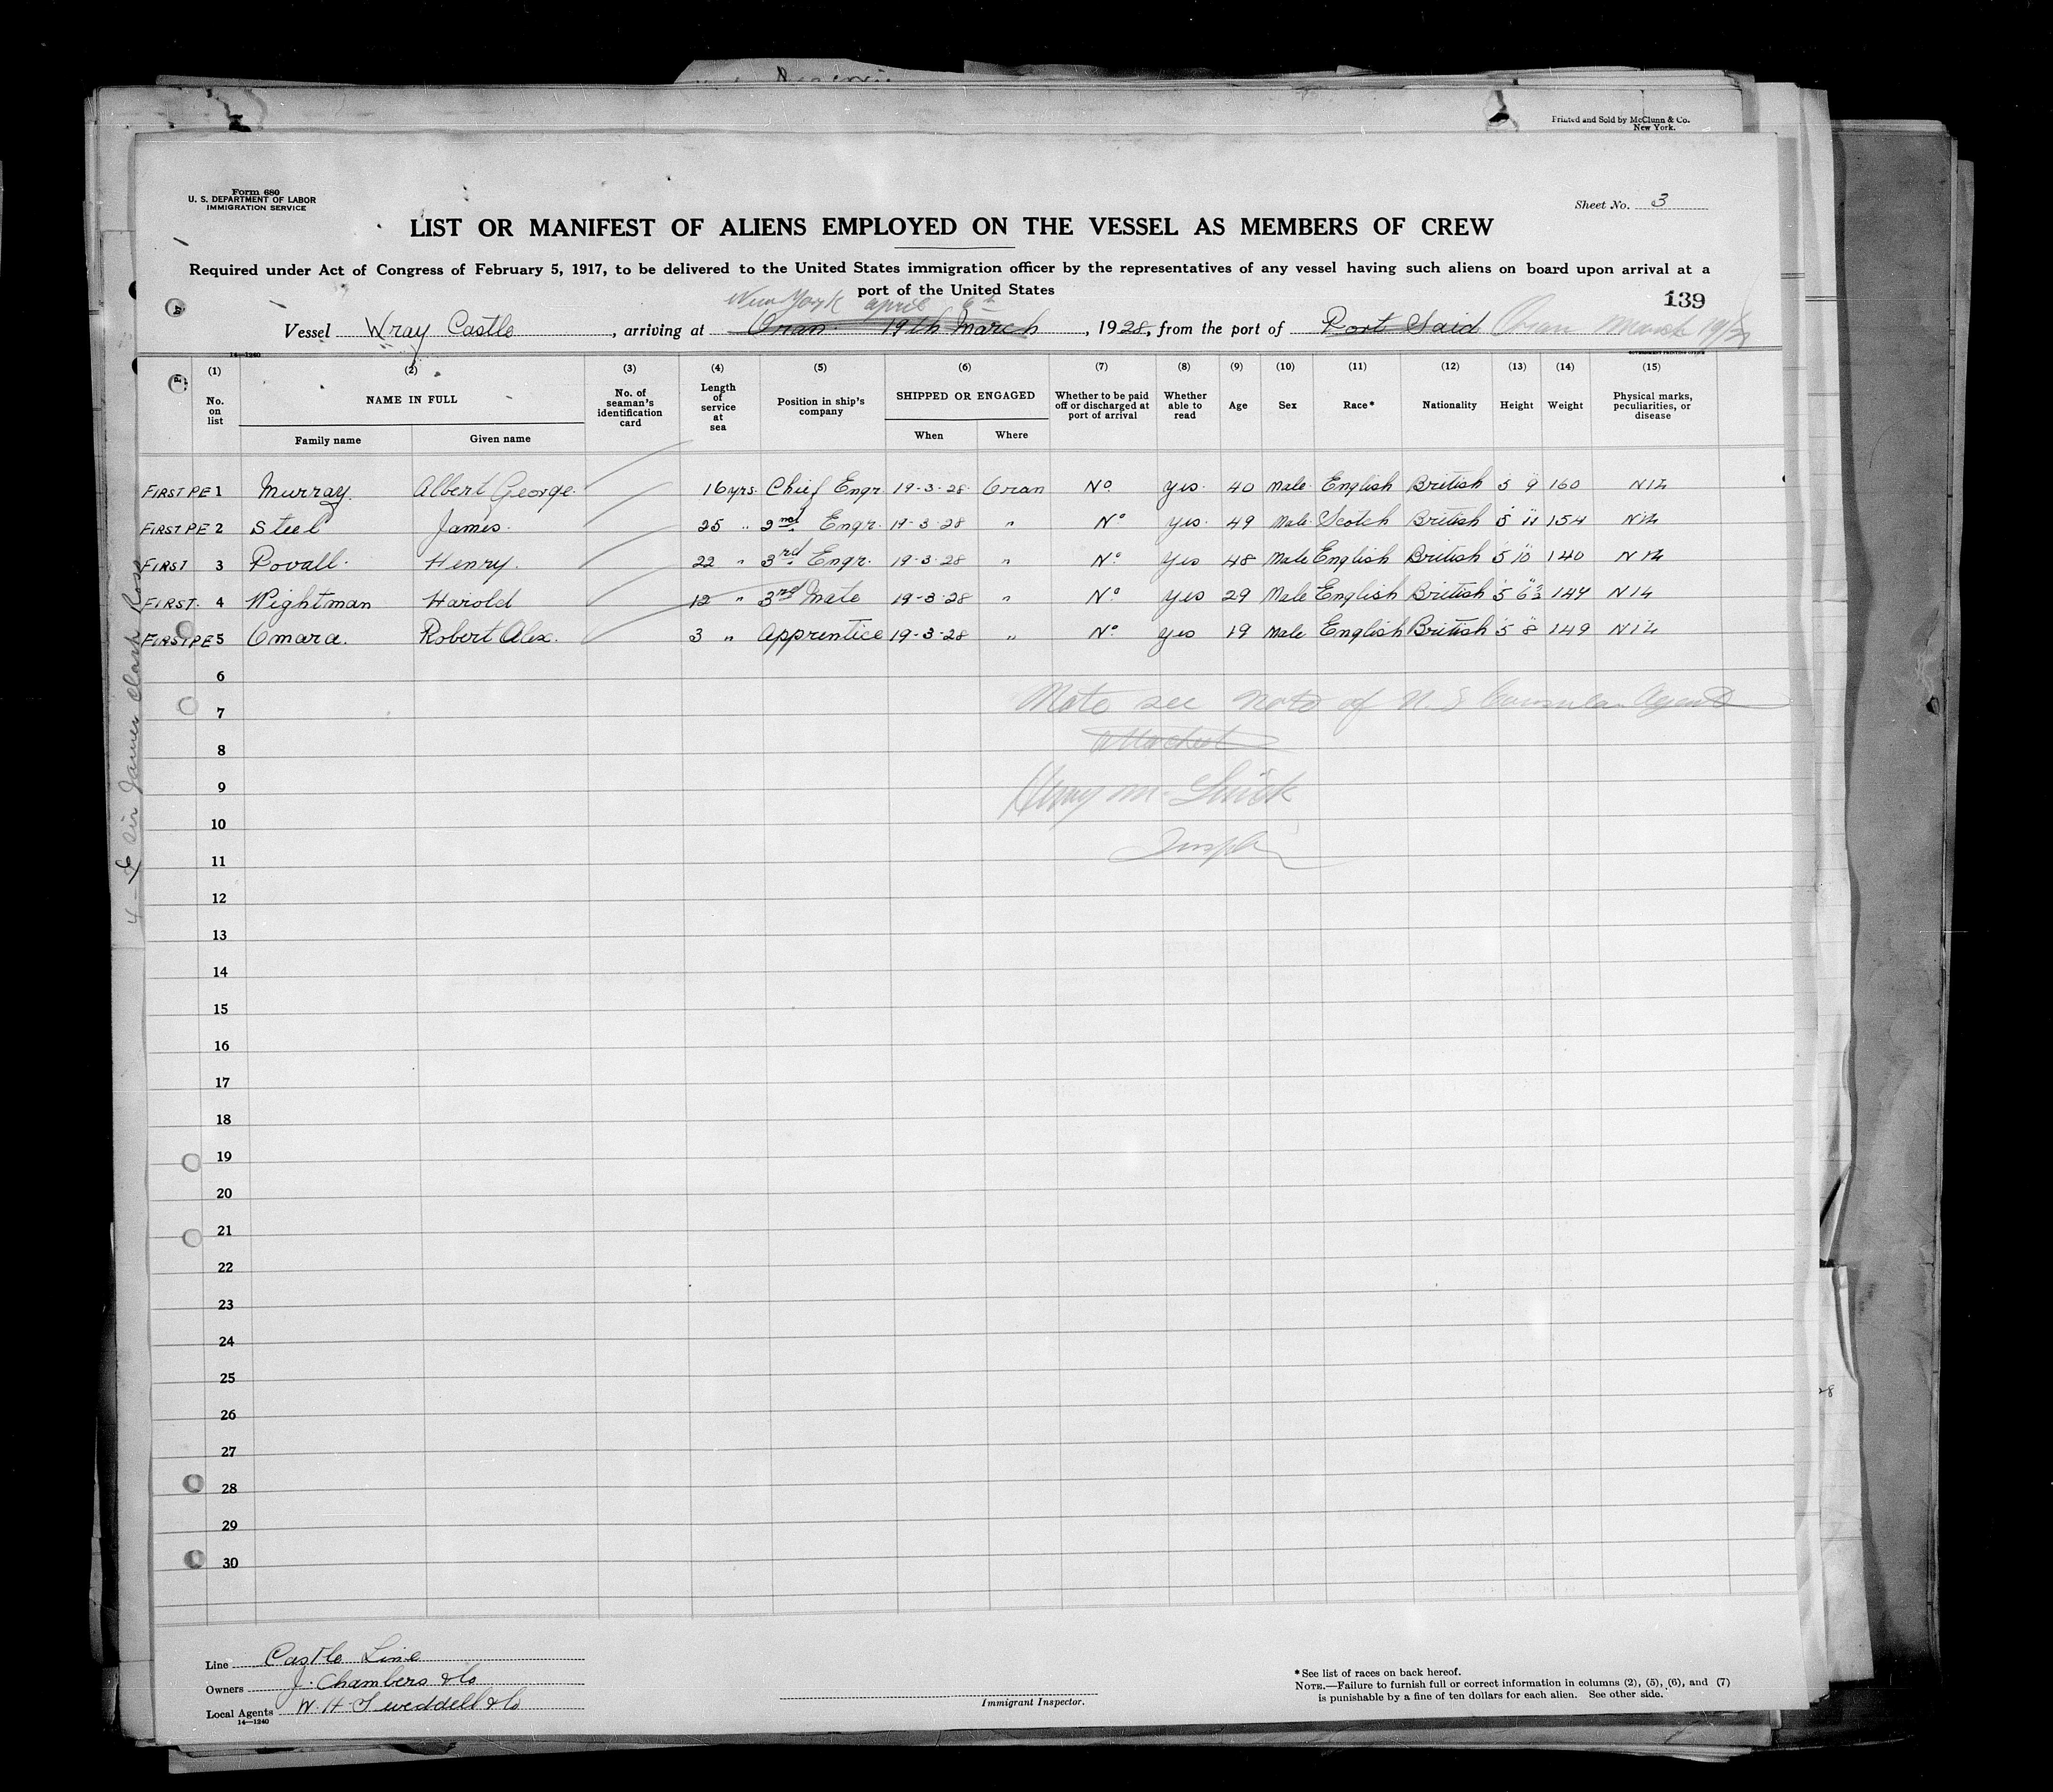 Printed and Sold by McClunn & Co.
New York.
Form 680
U. S. DEPARTMENT OF LABOR
IMMIGRATION SERVICE
Sheet No. 3
LIST OR MANIFEST OF ALIENS EMPLOYED ON THE VESSEL AS MEMBERS OF CREW
Required under Act of Congress of February 5, 1917, to be delivered to the United States immigration officer by the representatives of any vessel having such aliens on board upon arrival at a
port of the United States
139
New York april 6th
Vessel Wray Castle, arriving at Oran 19th March, 1928, from the port of Port Said Oran March 19/28
14—1240
GOVERNMENT PRINTING OFFICE
(1) (2) (3) (4) (5) (6) (7) (8) (9) (10) (11) (12) (13) (14) (15)
No. on list NAME IN FULL No. of seaman's identification card Length of service at sea Position in ship's company SHIPPED OR ENGAGED Whether to be paid off or discharged at port of arrival Whether able to read Age Sex Race* Nationality Height Weight Physical marks, peculiarities, or disease
Family name Given name When Where
FIRST PE 1 Murray Albert George 16 yrs. Chief Engr 19-3-28 Oran No yes 40 Male English British 5 9 160 NIL
FIRST PE 2 Steel James 25 " 2nd Engr. 19-3-28 " No yes 49 Male Scotch British 5 11 154 NIL
FIRST 3 Povall Henry 22 " 3rd Engr. 19-3-28 " No yes 48 Male English British 5 10 140 NIL
FIRST 4 Wightman Harold 12 " 3rd Mate 19-3-28 " No yes 29 Male English British 5 6½ 147 NIL
FIRST PE 5 Omara Robert Alex. 3 " Apprentice 19-3-28 " No yes 19 Male English British 5 8 149 NIL
6
Note see note of U.S Consular Agent
7
attached
8
9
Henry M.
10
11
12
13
14
15
16
17
18
19
20
21
22
23
24
25
26
27
28
29
30
4 - Sir James Clark Ross
Line Castle Line
Owners J. Chambers & Co
Local Agents W. H. Tweddell & Co
14—1240
Immigrant Inspector.
*See list of races on back hereof.
NOTE.—Failure to furnish full or correct information in columns (2), (5), (6), and (7)
is punishable by a fine of ten dollars for each alien. See other side.